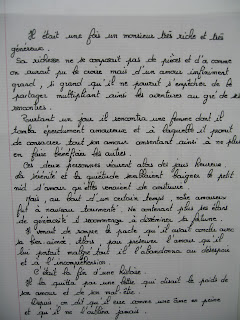 Il était une fois un monsieur très riche et très
généreux.
Sa richesse ne se composait pas de pièces et d'or comme
on aurait pu le croire mais d'un amour infiniment
grand, si grand qu'il ne pouvait s'empêcher de le
partager multipliant ainsi les aventures au gré de ses
rencontres.
Pourtant un jour il rencontra une femme dont il
tomba éperdument amoureux et à laquelle il promit
de consacrer tout son amour consentant ainsi à ne plus
en faire bénéficier les autres.
Ces deux personnes vécurent alors des jours heureux
la sérénité et la quiétude semblaient baigner le petit
nid d'amour qu'elles venaient de construire.
Mais, au bout d'un certain temps, notre amoureux
fut à nouveau tourmenté : ne contenant plus ses élans
de générosité il recommença à disséminer sa fortune.
Il venait de rompre le pacte qu'il avait conclu avec
sa bien-aimée. Alors, pour préserver l'amour qu'il
lui portait malgré tout il l'abandonna au désespoir
et à l'incompréhension.
C'était la fin d'une histoire.
Il la quitta par une lettre qui disait le poids de
son amour et de son mal-être.
Depuis, on dit qu'il erre comme une âme en peine
et qu'il ne l'oubliera jamais.